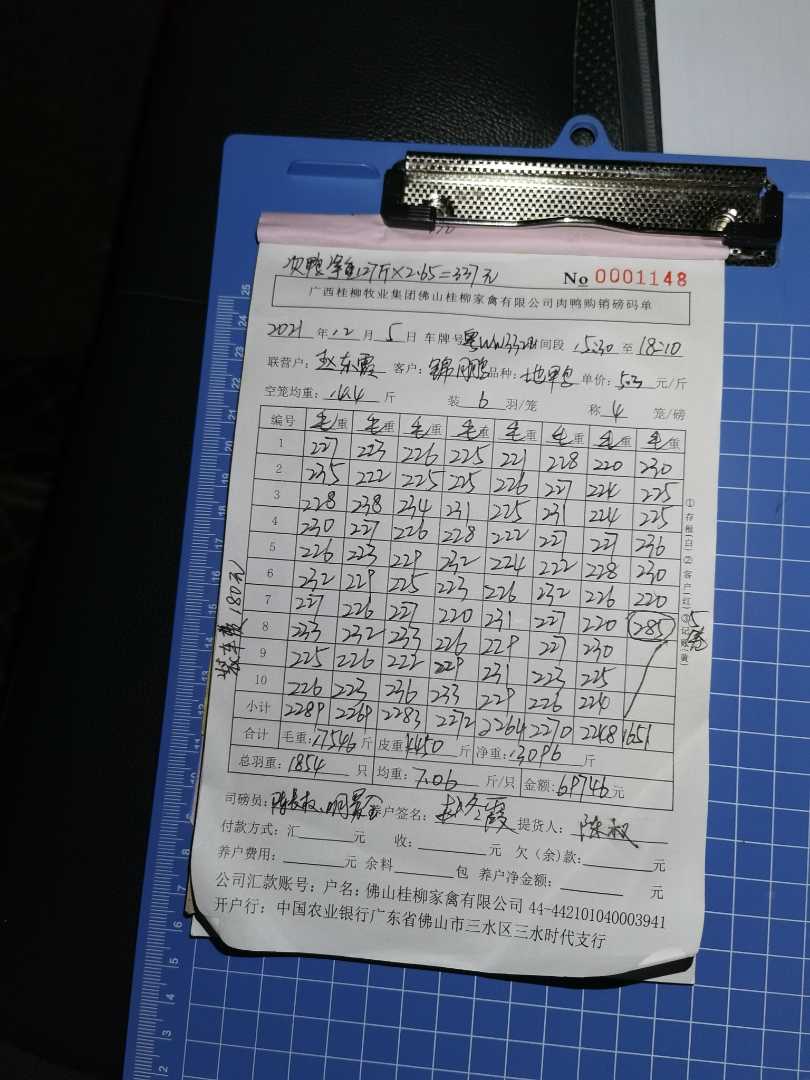 次鸭净重127斤×2.65=337元
No 0001148
广西桂柳牧业集团佛山桂柳家禽有限公司肉鸭购销磅码单
2021 年 12 月 5 日 车牌号 时间段 15:30 至 18:10
联营户: 赵东霞 客户: 锦鹏 品种: 地鸭 单价: 5.3 元/斤
空笼均重: 14.4 斤 装 6 羽/笼 称 4 笼/磅
编号 毛重 毛重 毛重 毛重 毛重 毛重 毛重 毛重
1 227 223 226 225 221 228 220 230
2 235 222 225 225 226 227 224 225
3 228 238 234 231 225 231 224 225
4 230 227 226 228 222 227 227 236
5 226 223 229 232 224 222 228 230
6 232 229 225 223 226 232 226 220
7 227 226 227 220 231 227 220 285 5笼
8 233 232 233 226 229 227 230
9 225 226 222 229 231 223 225
10 226 223 236 233 229 226 224
小计 2289 2269 2283 2272 2264 2270 2248 1651
合计 毛重: 17546 斤 皮重: 4450 斤 净重: 13096 斤
总羽重: 1854 只 均重: 7.06 斤/只 金额: 69746 元
司磅员: 养户签名: 赵冬霞 提货人: 陈权
付款方式: 汇 元 收: 元 欠(余)款: 元
养户费用: 元 余料 包 养户净金额: 元
公司汇款账号: 户名: 佛山桂柳家禽有限公司 44-442101040003941
开户行: 中国农业银行广东省佛山市三水区三水时代支行
装车费180元
①存根(白)②客户(红)③记账(黄)